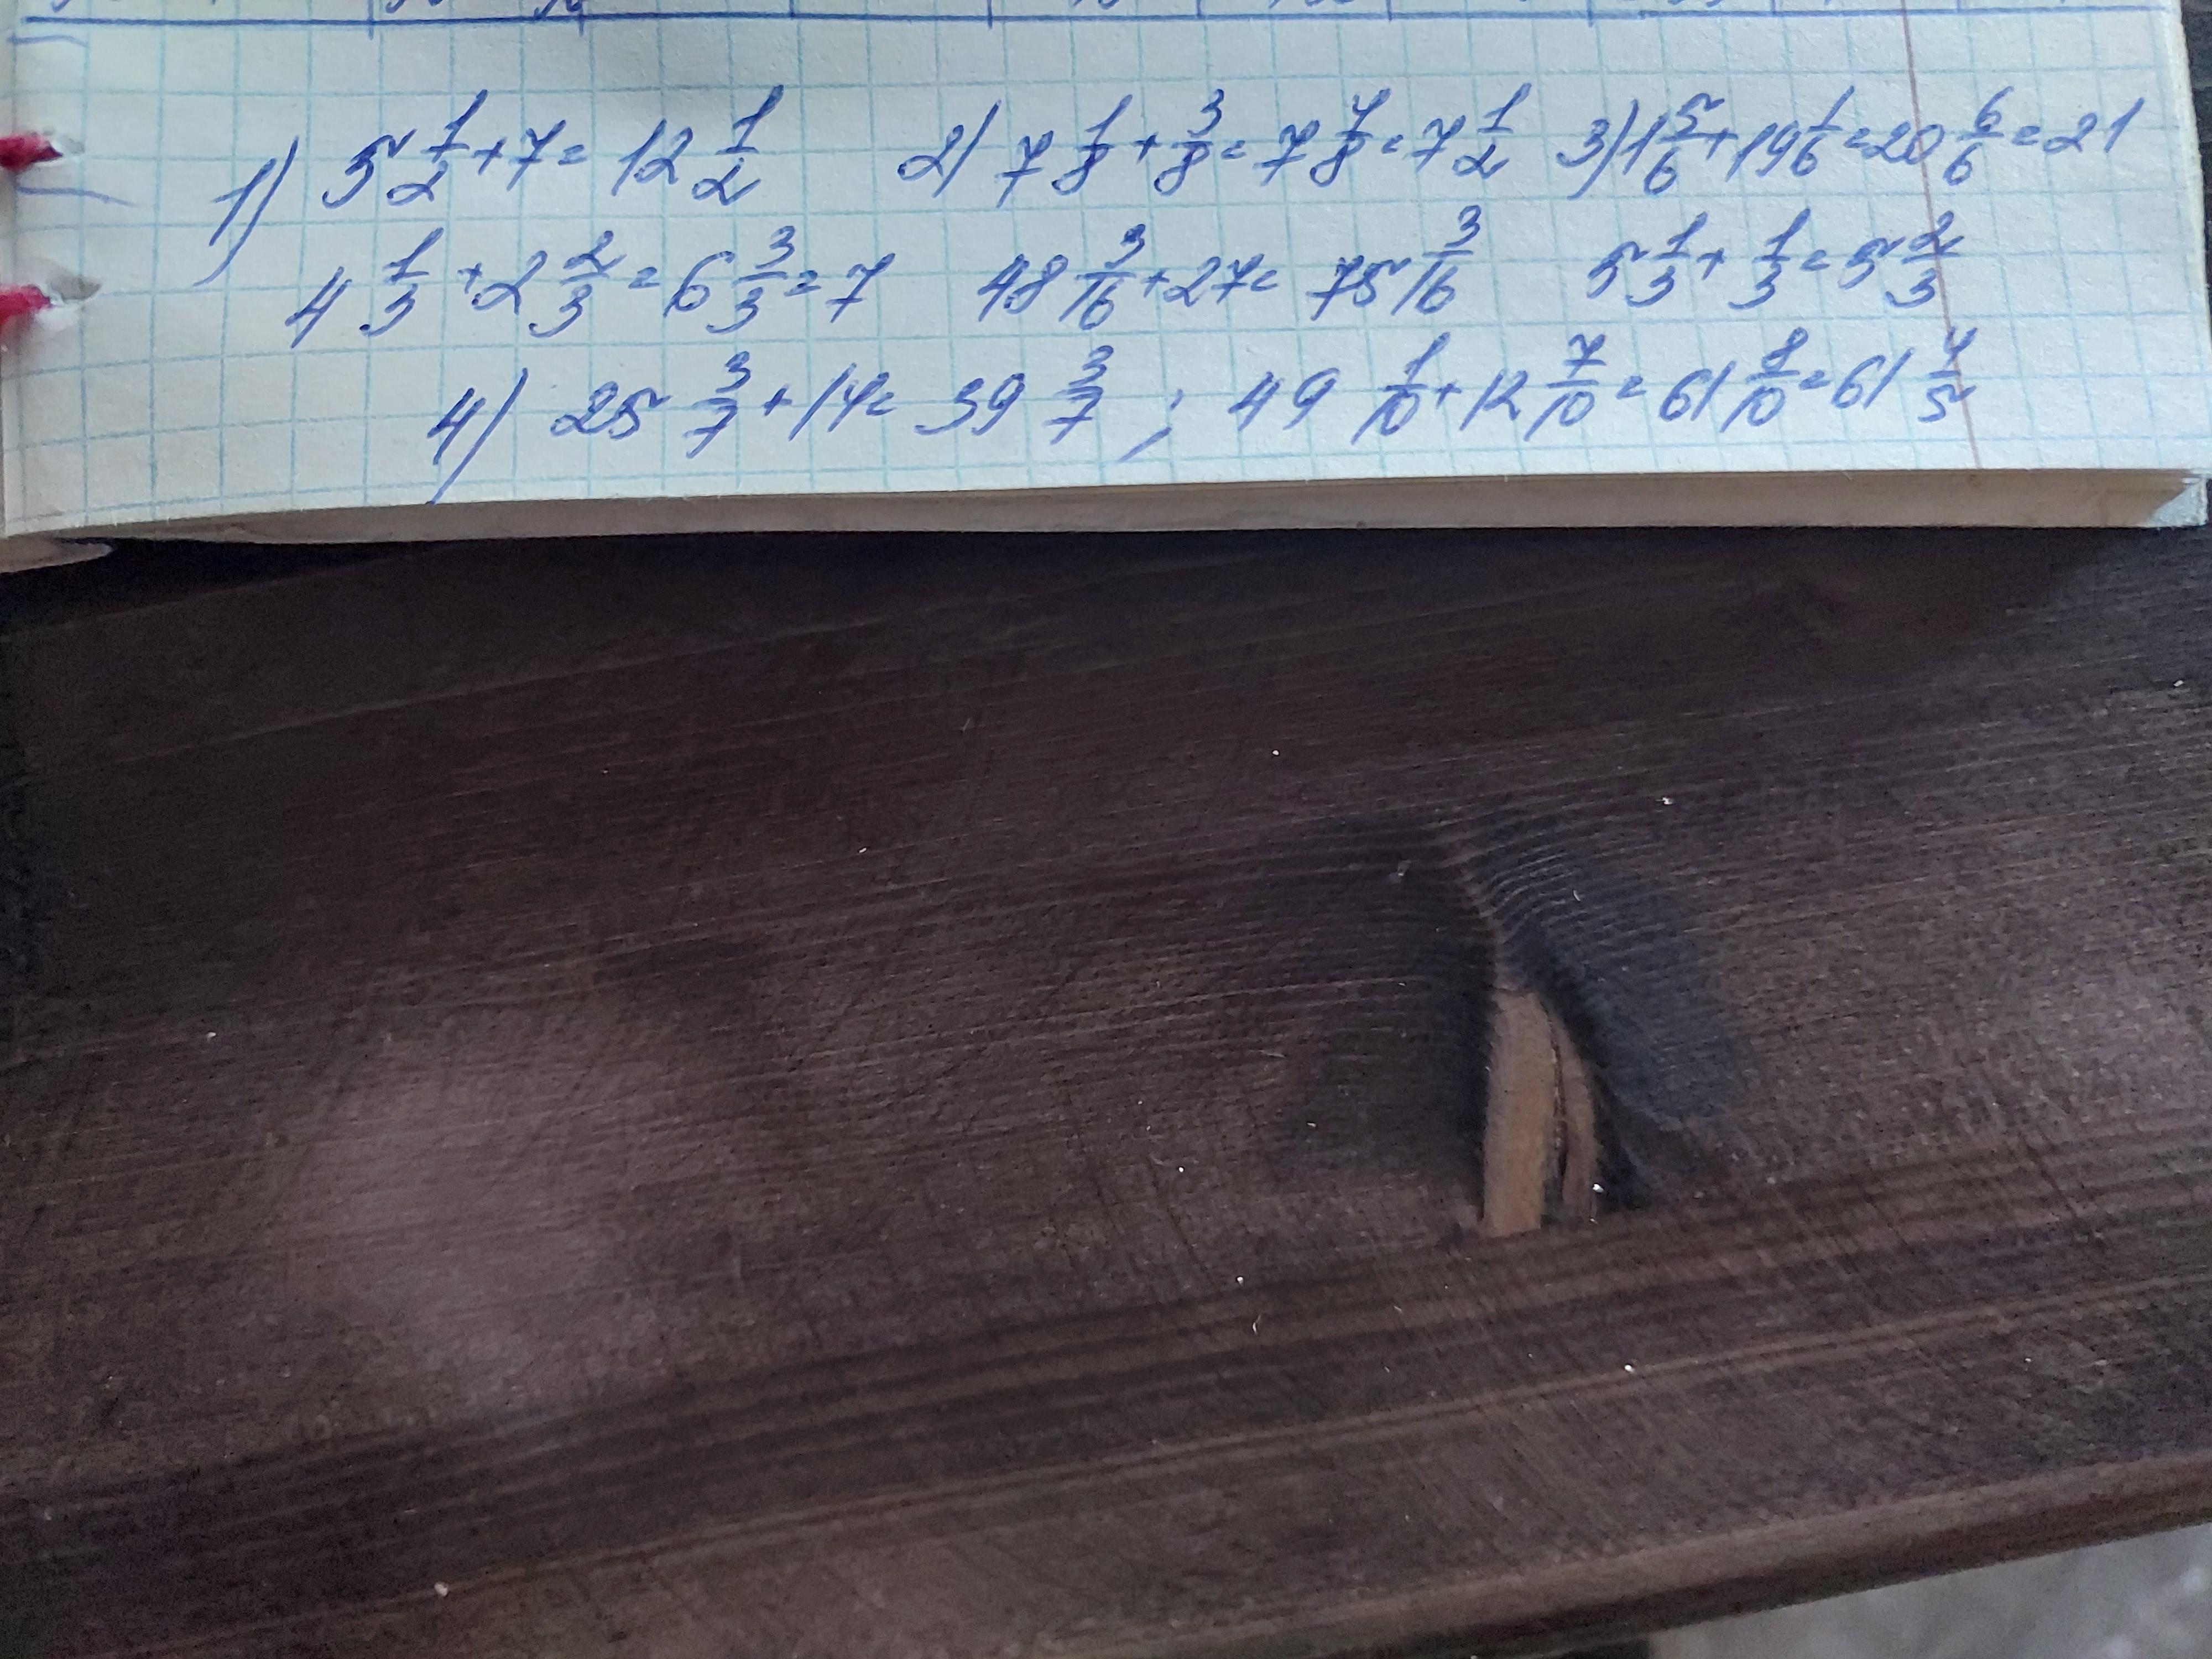 1) 5 1/2 + 7 = 12 1/2 2) 7 1/8 + 3/8 = 7 4/8 = 7 1/2 3) 1 5/6 + 19 1/6 = 20 6/6 = 21
4 1/3 + 2 2/3 = 6 3/3 = 7 48 3/16 + 27 = 75 3/16 5 1/3 + 1/3 = 5 2/3
4) 25 3/7 + 14 = 39 3/7 ; 49 1/10 + 12 7/10 = 61 8/10 = 61 4/5